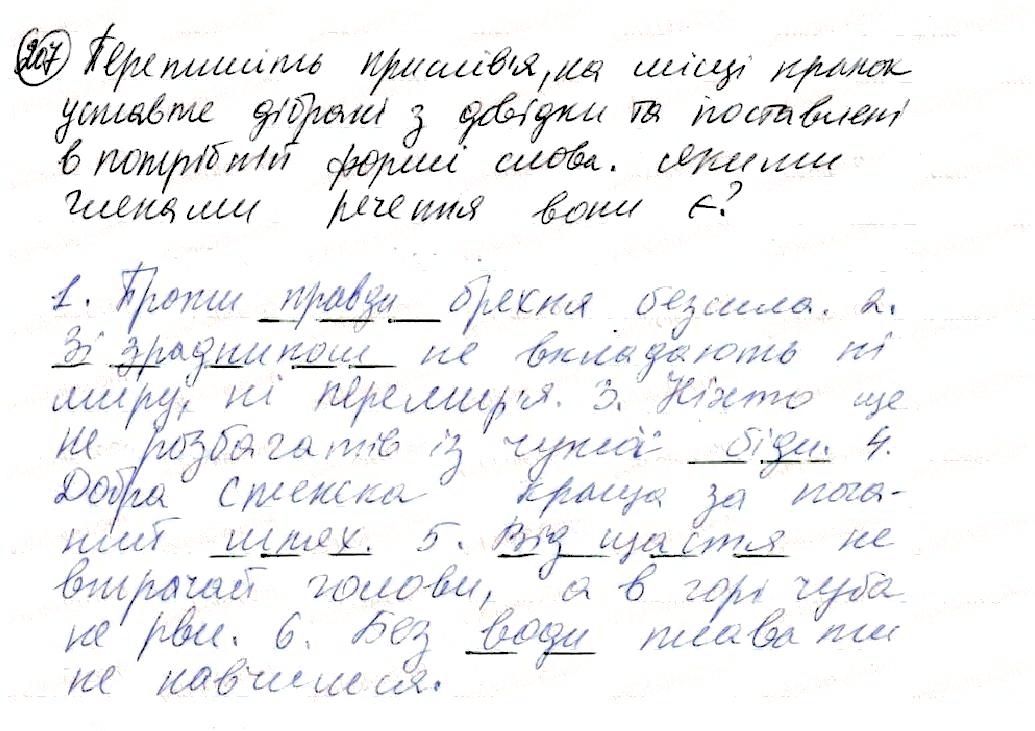 207 Перепишіть прислів'я, на місці крапок
уставте дібрані з довідки та поставлені
в потрібній формі слова. якими
членами речення вони є?
1. Проти правди брехня безсила. 2.
Зі зрадником не вкладають ні
миру, ні перемир'я. 3. Ніхто ще
не розбагатів із чужої біди. 4.
Добра стежка краща за пога-
ний шлях. 5. Від щастя не
втрачай голови, а в горі чуба
не рви. 6. Без води плавати
не навчишся.